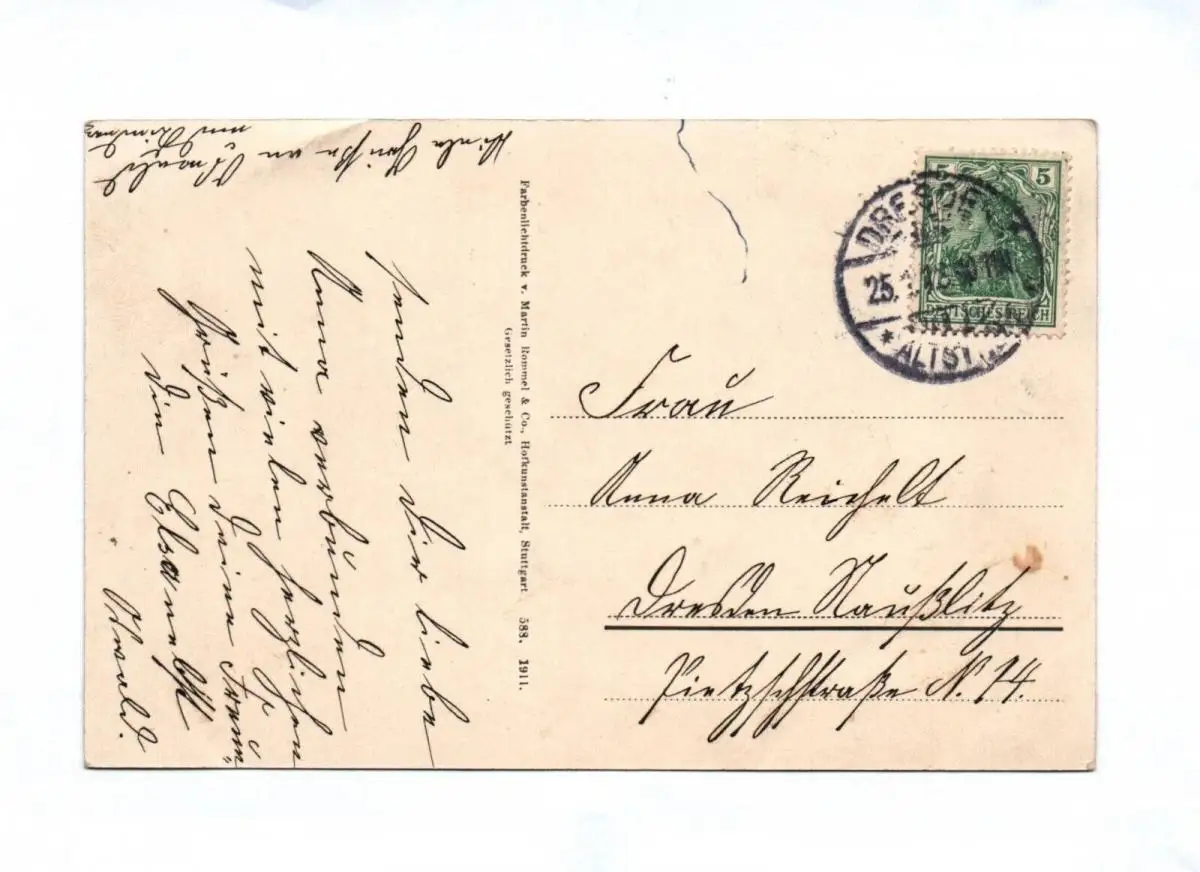 Viele Grüße an
senden dir liebe
Anna verbunden
mit vielen herzlichen
Grüßen deine Freun-
din Elsa nebst
Farbenlichtdruck v. Martin Rommel & Co., Hofkunstanstalt, Stuttgart 588. 1911.
Gesetzlich geschützt
5 5
DEUTSCHES REICH
DRESDEN
25.
* ALTST.
Frau
Anna Reichelt
Dresden Naußlitz
Pietzschstraße N. 14.